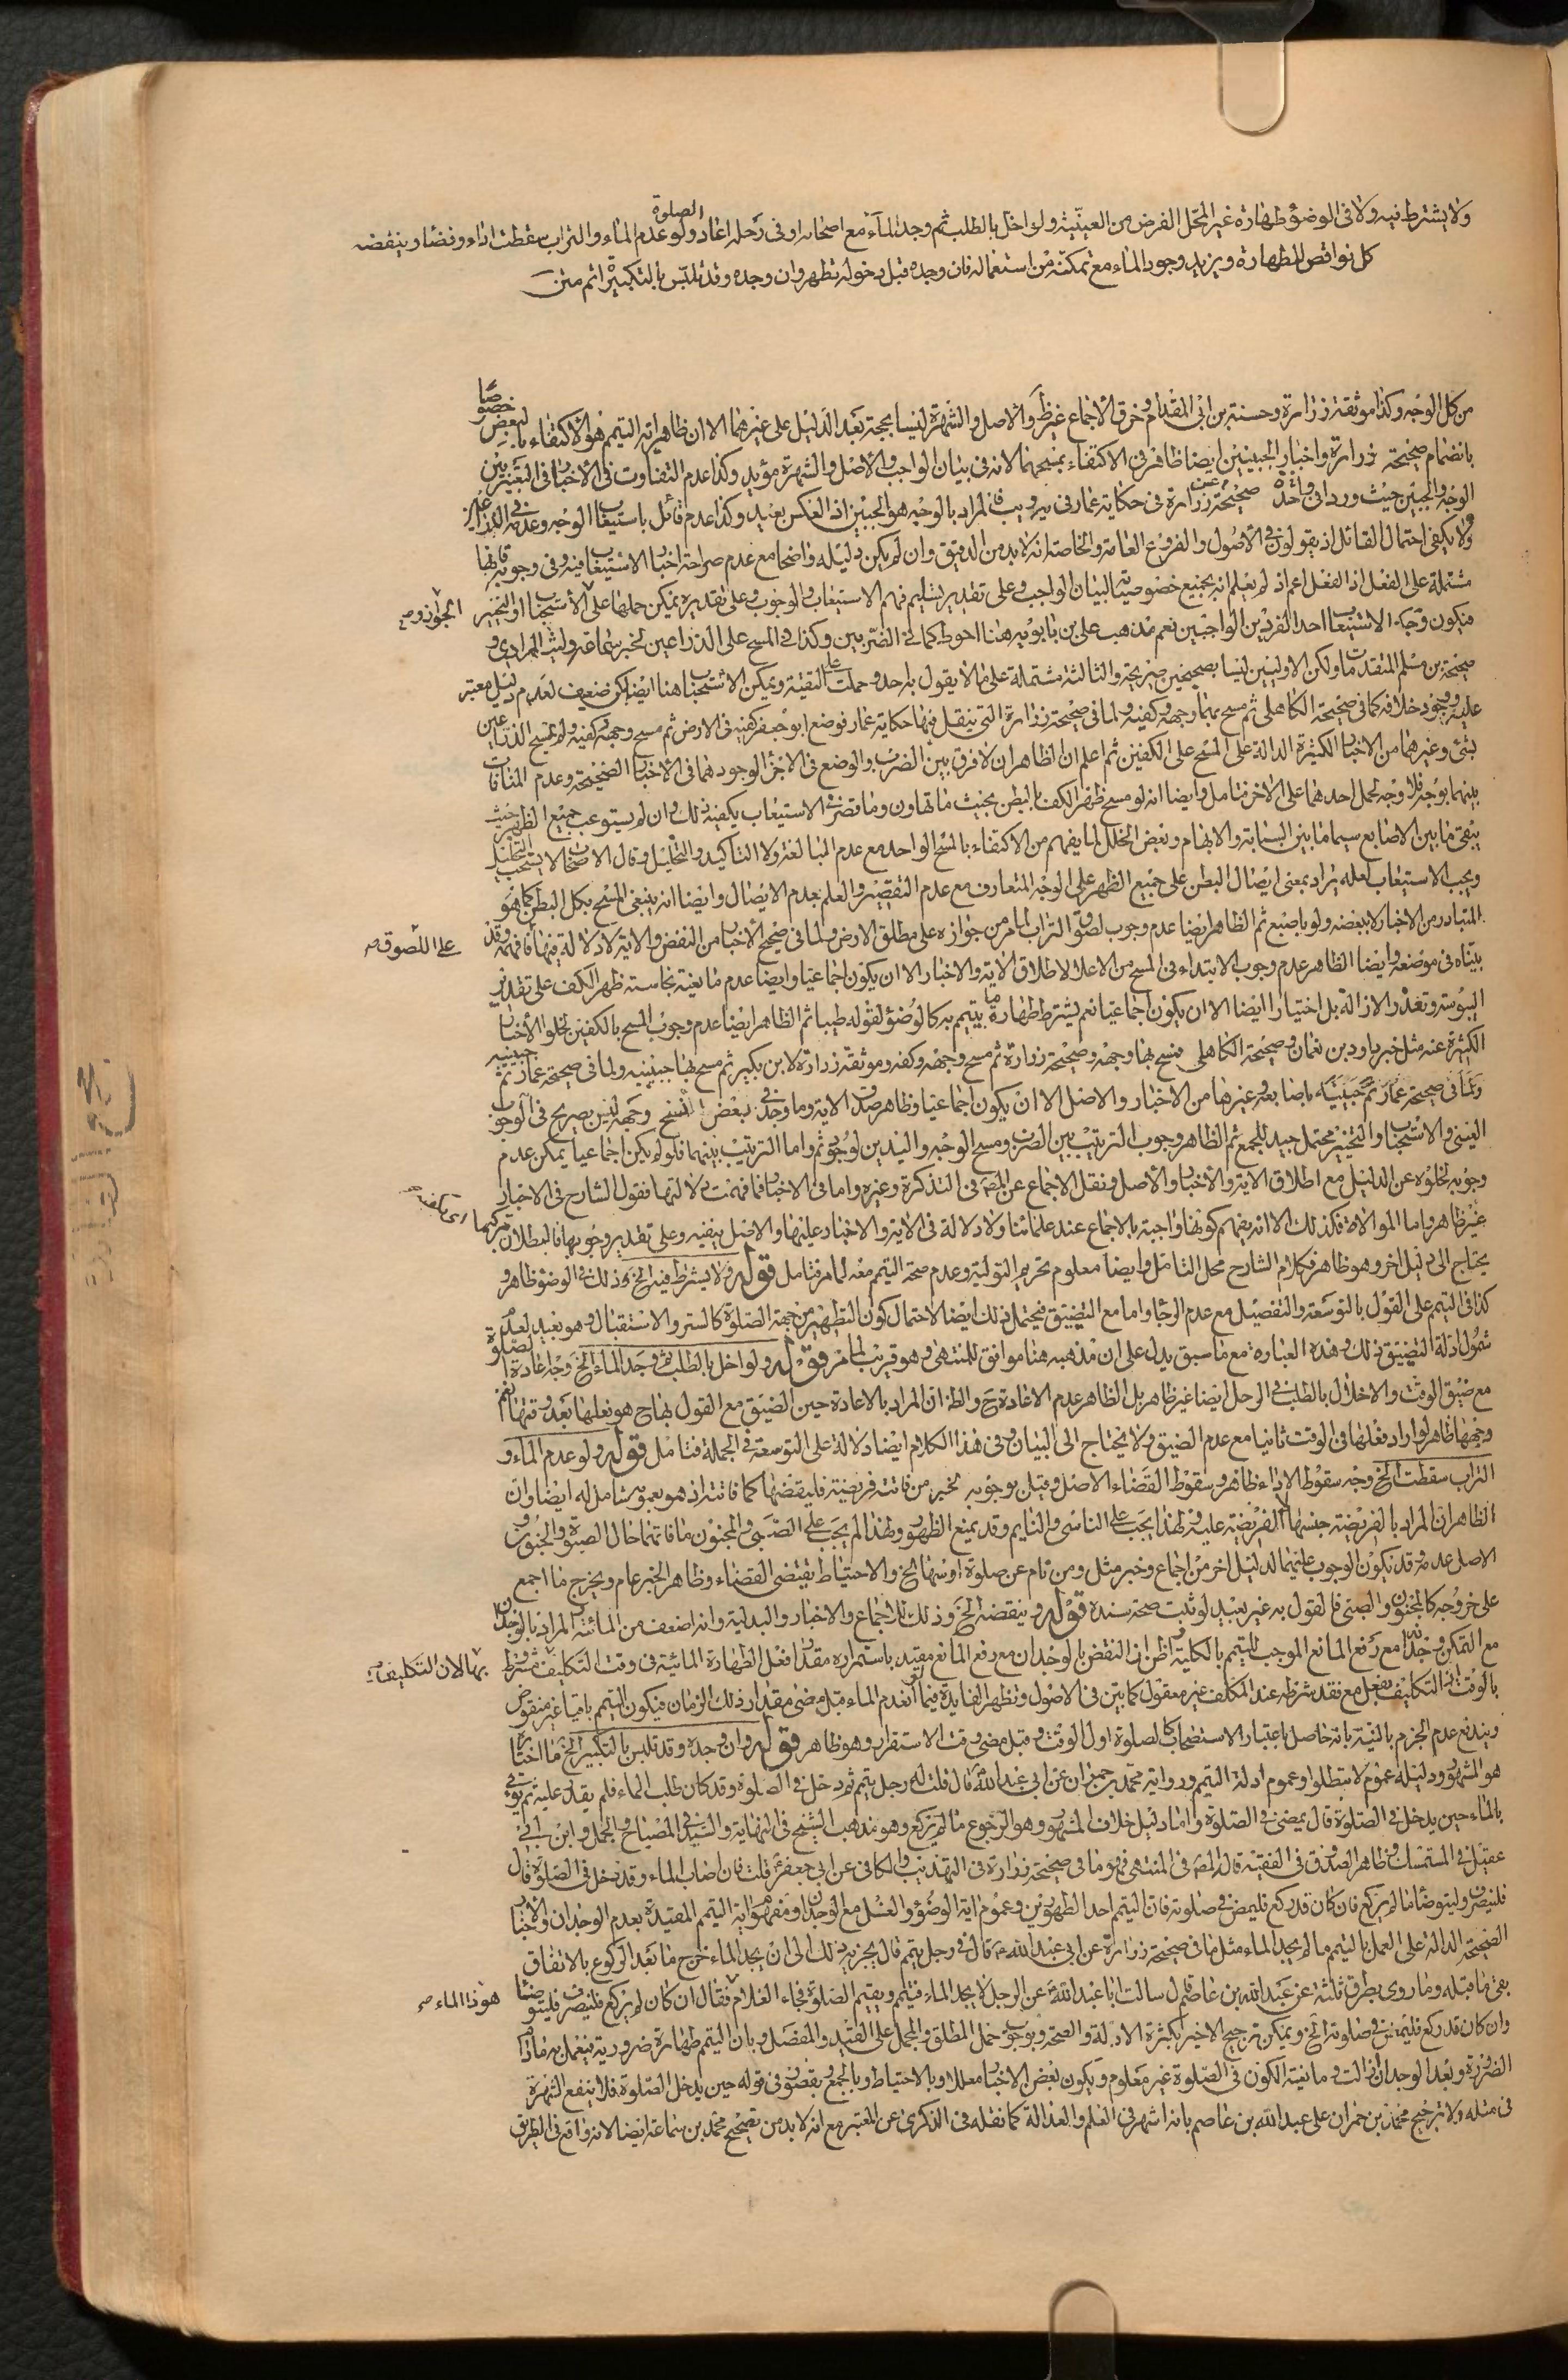 ولا يشترط فيه ولا فى الوضوء طهارة غير المحل الفرض من العينية ولو اخل بالطلب ثم وجد الماء مع اصحابه او فى رحله اعاد الصلوة ولو عدم الماء والتراب سقطت اداء وقضاء وينقضه
كل نواقض الطهارة ويزيد وجود الماء مع تمكنه من استعماله فان وجده قبل دخوله تطهر وان وجده وقد تلبس بالتكبيرة اتم متن
من كل الوجه وكذا موثقة زرارة وحسنة بن ابى المقدام وخرق الاجماع غير ظ والاصل والشهرة ليسا بحجة بعد الدليل على غيرهما الا ان ظاهر اية التيمم هو الاكتفاء بالبعض خصوصا
بانضمام صحيحة زرارة واخبار الجبينين ايضا ظاهر فى الاكتفاء بمسحهما لانه فى بيان الواجب والاصل والشهرة مؤيد وكذا عدم التفاوت فى الاخبار فى التعبير بين
الوجه والجبين حيث ورد فى واحدة صحيحة عن زرارة فى حكاية عمار فى يه ويب فالمراد بالوجه هو الجبين اذ العكس بعيد وكذا عدم قائل باستيعاب الوجه وعدمه فى الذراعين
ولا يكفى احتمال القائل اذ يقولون فى الاصول والفروع العامة والخاصة انه لابد من الدقيق وان لم يكن دليله واضحا مع عدم صراحة اخبار الاستيعاب فيه وفى وجوبه فانها
مشتملة على الفعل اذ الفعل اعم اذ لم يعلم انه بجميع خصوصياته لبيان الواجب وعلى تقدير تسليم فهم الاستيعاب والوجوب وعلى تقديره يمكن حملها على الاستحباب او التخيير الجواز وم
فيكون وجه الاستيعاب احد الفردين الواجبين نعم مذهب على بن بابويه هنا احوط كما فى الضربين وكذا فى المسح على الذراعين لخبر سماعة وليث المرادى و
صحيحة بن مسلم المتقدمات ولكن الاوليين ليسا بصحيحين صريحة والثالثة مشتملة على ما لا يقول به احد وحملت على التقية ويمكن الاستحباب هنا ايضا لكن ضعيف لعدم دليل معتبر
عليه ووجود خلافه كما فى صحيحة الكاهلى ثم مسح بهما وجهه وكفيه ولما فى صحيحة زرارة التى ينقل فيها حكاية عمار فوضع ابو جعفر كفيه فى الارض ثم مسح وجهه وكفيه ولم يمسح الذراعين
بشئ وغيرهما من الاخبار الكثيرة الدالة على المسح على الكفين ثم اعلم ان الظاهر ان لا فرق بين الضرب والوضع فى الاجزاء لوجودهما فى الاخبار الصحيحة وعدم المنافات
بينهما بوجه فلا وجه لحمل احدهما على الاخر فتامل وايضا انه لو مسح ظهر الكف بالبطن بحيث ما تهاون وما قصر فى الاستيعاب يكفيه ذلك وان لم يستوعب جميع الظهر حيث
يبقى ما بين الاصابع سيما ما بين السبابة والابهام وبعض الخلل لما يفهم من الاكتفاء بالمسح الواحد مع عدم المبالغة ولا التاكيد والتخليل وقال الاصحاب لا يستحب التخليل
ويجب الاستيعاب لعله يراد بمعنى ايصال البطن على جميع الظهر على الوجه المتعارف مع عدم التقصير والعلم بعدم الايصال وايضا انه ينبغى المسح بكل البطن كما هو
المتبادر من الاخبار لا ببعضه ولو باصبع ثم الظاهر ايضا عدم وجوب لصوق التراب لما مر من جوازه على مطلق الارض ولما فى صحيح الاخبار من النفض والاية لا دلالة فيها فافهمه وقد على اللصوق م
بيناه فى موضعه وايضا الظاهر عدم وجوب الابتداء فى المسح من الاعلا لاطلاق الاية والاخبار الا ان يكون اجماعيا وايضا عدم مانعية نجاسة ظهر الكف على تقدير
اليبوسة وتعذر الازالة بل اختيارا ايضا الا ان يكون اجماعيا نعم يشترط طهارة ما يتيمم به كالوضوء لقوله طيبا ثم الظاهر ايضا عدم وجوب المسح بالكفين لخلو الاخبار
الكثيرة عنه مثل خبر داود بن نعمان وصحيحة الكاهلى فمسح بها وجهه وصحيحة زرارة ثم مسح وجهه وكفه وموثقة زرارة لابن بكير ثم مسح بها جبينه ولما فى صحيحة عمار ثم جبينيه
ولما فى صحيحة عمار ثم جبينيه باصابعه وغيرها من الاخبار والاصل الا ان يكون اجماعيا وظاهر صدق الاية وما وجد فى بعض النسخ وجهه ليس بصريح فى الوجوب
العينى والاستحباب والتخيير محتمل جيد للجمع ثم الظاهر وجوب الترتيب بين الضرب ومسح الوجه واليدين لوجود ثم واما الترتيب بينهما فلو لم يكن اجماعيا يمكن عدم
وجوبه لخلوه عن الدليل مع اطلاق الاية والاخبار والاصل ونقل الاجماع عن المصـ فى التذكرة وغيره واما فى الاخبار فما فهمت دلالتها فقول الشارح فى الاخبار
غير ظاهر واما الموالاة فكذلك الا انه يفهم كونها واجبة بالاجماع عند علمائنا ولا دلالة فى الاية والاخبار عليها والاصل ينفيه وعلى تقدير وجوبها فالبطلان بتركها
يحتاج الى دليل اخر وهو ظاهر فكلام الشارح محل التامل وايضا معلوم تحريم التولية وعدم صحة التيمم معه لما مر فتامل قوله ولا يشترط فيه الخ وذلك فى الوضوء ظاهر و
كذا فى التيمم على القول بالتوسعة والتفصيل مع عدم الرجا واما مع التضييق فيحتمل ذلك ايضا لاحتمال كون التطهير من جهة الصلوة كالستر والاستقبال وهو بعيد لعدم
شمول ادلة التضييق ذلك وهذه العبارة مع ما سبق يدل على ان مذهبه هنا موافق للمنتهى وهو قريب لما مر قوله ولو اخل بالطلب ثم وجد الماء الخ وجه اعادة الصلوة
مع ضيق الوقت والاخلال بالطلب فى الرحل ايضا غير ظاهر بل الظاهر عدم الاعادة ح والظ ان المراد بالاعادة حين الضيق مع القول بها ح هو فعلها بعد وقتها نعم
وجهها ظاهر لو اراد فعلها فى الوقت ثانيا مع عدم الضيق ولا يحتاج الى البيان وفى هذا الكلام ايضا دلالة على التوسعة فى الجملة فتامل قوله ولو عدم الماء و
التراب سقطت الخ وجه سقوط الاداء ظاهر وسقوط القضاء الاصل وقيل بوجوبه لخبر من فاتته فريضة فليقضها كما فاتته اذ هو بعمومه شامل له ايضا وان
الظاهر ان المراد بالفريضة جنسها لا الفريضة عليه ولهذا يجب على الناسى والنايم وقد يمنع الظهور ولهذا لم يجب على الصبى والمجنون ما فاتهما حال الصبوة والجنون و
الاصل عدمه وقد يكون الوجوب عليهما لدليل اخر من اجماع وخبر مثل ومن نام عن صلوة او سها الخ والاحتياط يقتضى القضاء وظاهر الخبر عام ويخرج ما اجمع
على خروجه كالمجنون والصبى فالقول به غير بعيد لو ثبت صحة سنده قوله وينقضه الخ وذلك للاجماع والاخبار والبدلية وانه اضعف من المائية والمراد بالوجدان
مع التمكن وجدانه مع رفع المانع الموجب للتيمم بالكلية واظن ان النقض بالوجدان مع رفع المانع مقيد باستمراره مقدار فعل الطهارة المائية فى وقت التكليف مشروط بها لان التكليف م
بالوقت اذ التكليف بفعل مع فقد شرطه عند المكلف غير معقول كما بين فى الاصول وتظهر الفايدة فيما لو انعدم الماء قبل مضى مقدار ذلك الزمان فيكون التيمم باقيا غير منقوض
ويندفع عدم الجزم بالنية بانه حاصل باعتبار الاستصحاب كالصلوة اول الوقت وقبل مضى وقت الاستقرار وهو ظاهر قوله وان وجده وقد تلبس بالتكبير الخ ما اختاره
هو المشهور ودليله عموم لا تبطلوا وعموم ادلة التيمم ورواية محمد بن حمران عن ابى عبد الله قال قلت له رجل تيمم ثم دخل فى الصلوة وقد كان طلب الماء فلم يقدر عليه ثم يؤتى
بالماء حين يدخل فى الصلوة قال يمضى فى الصلوة واما دليل خلاف المشهور وهو الرجوع ما لم يركع وهو مذهب الشيخ فى النهاية والسيد فى المصباح والجمل وابن ابى
عقيل فى المستمسك وظاهر الصدوق فى الفقيه قاله المصـ فى المنتهى فهو ما فى صحيحة زرارة فى التهذيب والكافى عن ابى جعفر قلت فان اصاب الماء وقد دخل فى الصلوة قال
فلينصرف وليتوضأ ما لم يركع فان كان قد ركع فليمض فى صلوته فان التيمم احد الطهورين وعموم اية الوضوء والغسل مع الوجدان او مفهوم اية التيمم المقيدة بعدم الوجدان والاخبار
الصحيحة الدالة على العمل بالتيمم ما لم يجد الماء مثل ما فى صحيحة زرارة عن ابى عبد الله قال فى رجل تيمم قال يجزيه ذلك الى ان يجد الماء خرج ما بعد الركوع بالاتفاق
بقى ما قبله وما روى بطرق ثلثة عن عبد الله بن عاصم قال سالت ابا عبد الله عن الرجل لا يجد الماء فيتيمم ويقيم الصلوة فجاء الغلام فقال هو ذا الماء م ان كان لم يركع فلينصرف فليتوضأ
وان كان قد ركع فليمض فى صلوته الخ ويمكن ترجيح الاخير بكثرة الادلة والصحة وبوجوب حمل المطلق والمجمل على المقيد والمفصل وبان التيمم طهارة ضرورية فيعمل به ما دام
الضرورة وبعد الوجدان زالت ومانعية الكون فى الصلوة غير معلوم ويكون بعض الاخبار معللا وبالاحتياط وبالجمع وبقصور فى قوله حين يدخل الصلوة فلا ينفع الشهرة
فى مثله ولا ترجيح محمد بن حمران على عبد الله بن عاصم بانه اشهر فى العلم والعدالة كما نقله فى الذكرى عن المعتبر مع انه لابد من تصحيح محمد بن سماعة ايضا لانه واقع فى الطريق